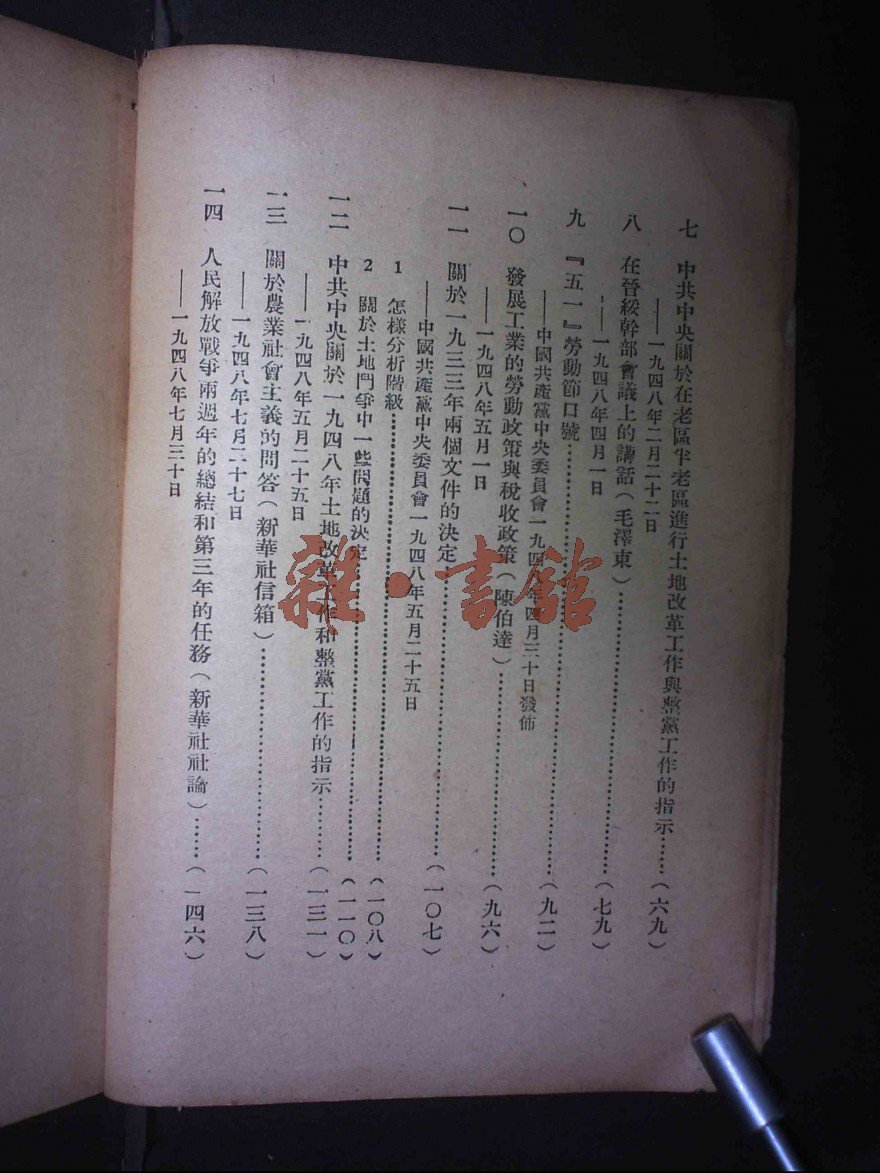 七　中共中央關於在老區半老區進行土地改革工作與整黨工作的指示……（六九）
——一九四八年二月二十二日
八　在晉綏幹部會議上的講話（毛澤東）……（七九）
——一九四八年四月一日
九　『五一』勞動節口號……（九二）
——中國共產黨中央委員會一九四八年四月三十日發佈
一〇　發展工業的勞動政策與稅收政策（陳伯達）……（九六）
——一九四八年五月一日
一一　關於一九三三年兩個文件的決定……（一〇七）
——中國共產黨中央委員會一九四八年五月二十五日
1　怎樣分析階級……（一〇八）
2　關於土地鬥爭中一些問題的決定……（一一〇）
一二　中共中央關於一九四八年土地改革工作和整黨工作的指示……（一三一）
——一九四八年五月二十五日
一三　關於農業社會主義的問答（新華社信箱）……（一三八）
——一九四八年七月二十七日
一四　人民解放戰爭兩週年的總結和第三年的任務（新華社社論）……（一四六）
——一九四八年七月三十日
雜·書館